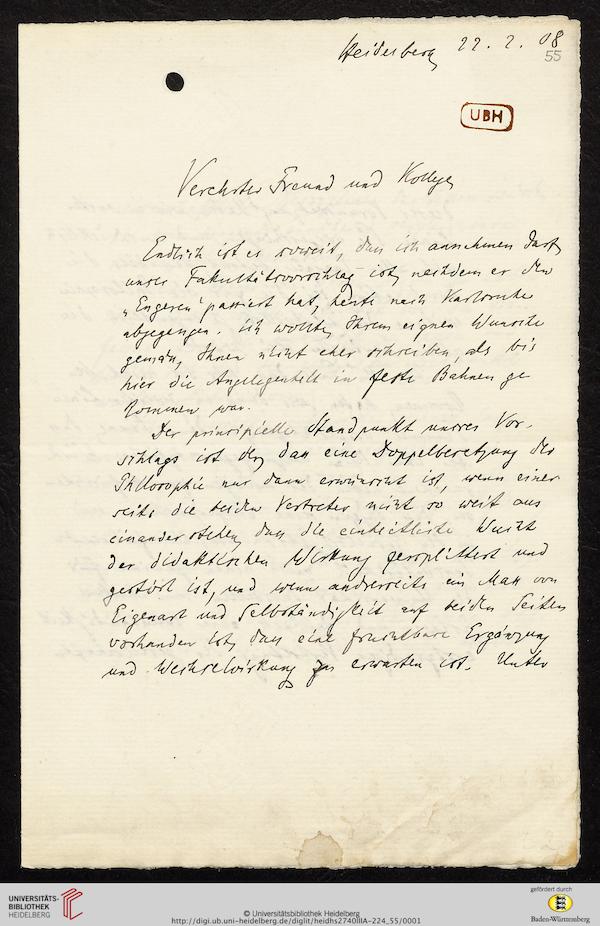 Heidelberg 22. 2. 08
55
UBH
Verehrter Freund und Kollege,
Endlich ist es soweit, dass ich annehmen darf,
unser Fakultätsvorschlag ist, nachdem er den
„Engeren“ passiert hat, heute nach Karlsruhe
abgegangen. Ich wollte, Ihrem eignen Wunsche
gemäss, Ihnen nicht eher schreiben, als bis
hier die Angelegenheit in feste Bahnen ge
kommen war.
Der principielle Standpunkt unsres Vor-
schlags ist der, dass eine Doppelbesetzung der
Philosophie nur dann erwünscht ist, wenn einer
seits die beiden Vertreter nicht so weit aus
einander stehen, dass die einheitliche Wucht
der didaktischen Wirkung zersplittert und
gestört ist, und wenn andrerseits ein Mass von
Eigenart und Selbständigkeit auf beiden Seiten
vorhanden ist, dass eine fruchtbare Ergänzung
und Wechselwirkung zu erwarten ist. Unter
UNIVERSITÄTS-
BIBLIOTHEK
HEIDELBERG
© Universitätsbibliothek Heidelberg
http://digi.ub.uni-heidelberg.de/diglit/heidhs2740IIIA-224_55/0001
gefördert durch
Baden-Württemberg